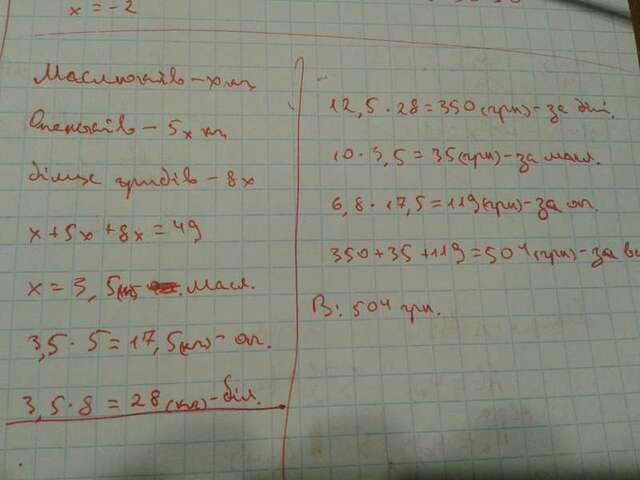 x = -2
Маслюків - x кг
Опеньків - 5x кг
білих грибів - 8x
x + 5x + 8x = 49
x = 3,5(кг) масл.
3,5 · 5 = 17,5(кг) - оп.
3,5 · 8 = 28(кг) - біл.
12,5 · 28 = 350(грн) - за біл.
10 · 3,5 = 35(грн) - за масл.
6,8 · 17,5 = 119(грн) - за оп.
350 + 35 + 119 = 504(грн) - за вс
В: 504 грн.